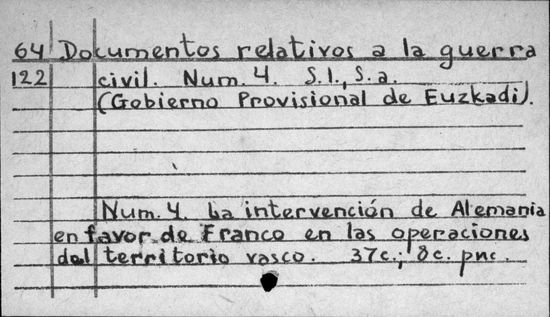 64 Documentos relativos a la guerra
122 civil. Num. 4. S.l., S.a.
(Gobierno Provisional de Euzkadi).
Num. 4. La intervención de Alemania
en favor de Franco en las operaciones
del territorio vasco. 37c.; 8c. pnc.